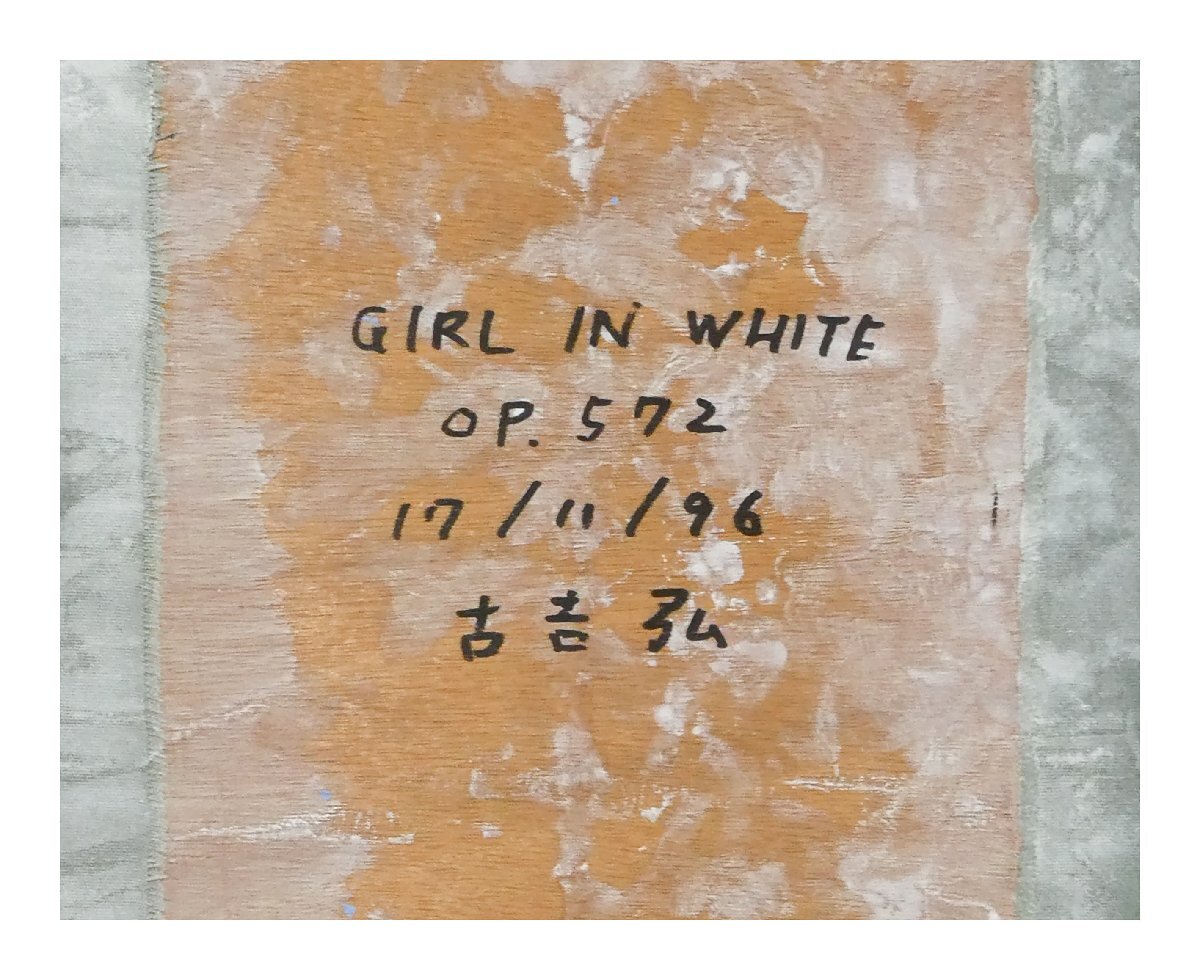 GIRL IN WHITE
OP. 572
17/11/96
古吉弘